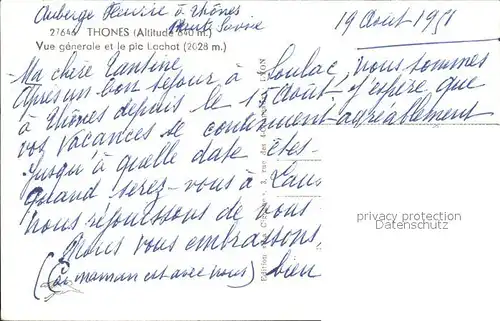 Auberge Fleurie à Thônes
Haute Savoie
19 Août 1951
27646 THONES (Altitude 640 m.)
Vue générale et le pic Lachat (2028 m.)
Ma chère Tantine
Après un bon séjour à Soulac, nous sommes
à Thônes depuis le 15 Août; j'espère que
vos vacances se continuent agréablement
Jusqu'à quelle date êtes-
Quand serez-vous à Lau
nous réjouissons de vous
Nous vous embrassons
bien
( maman est avec nous)
LYON
3, rue des
privacy protection
Datenschutz